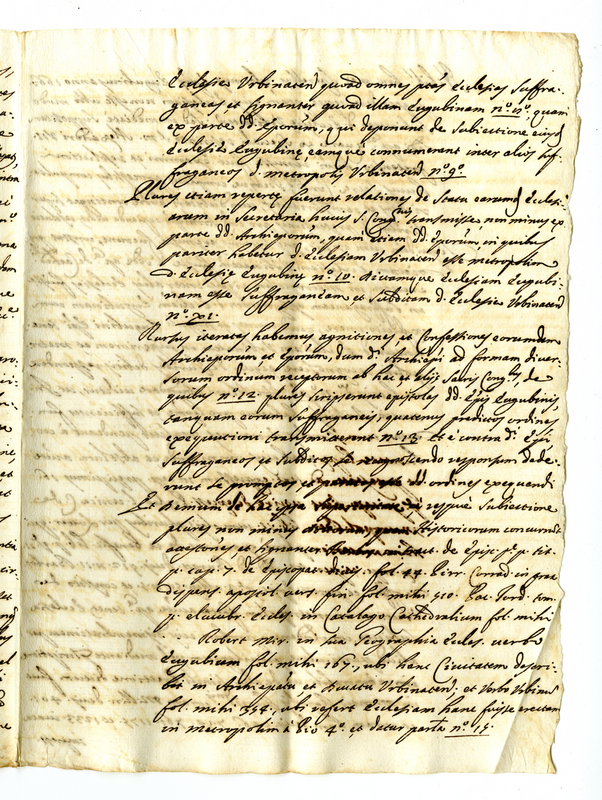 Ecclesie Urbinaten quod omnes ptas Ecclesias suffra-
ganeas et signanter quod illam Eugubinam n.º 8.º, quam
ex parte DD. Eporum, qui deponunt de subiectione eiusd
Ecclesię Eugubinę, eamque connumerant inter alios suf-
fraganeos d. metropolis Urbinaten n.º 9.º
Plures etiam repertę fuerunt relationes de Statu earumd Eccles-
arum in Secretaria huius S. Congnis transmissę, non minus ex
parte DD. Archieporum, quam etiam DD. Eporum, in quibus
pariter habetur d. Ecclesiam Urbinaten esse metropolim
d. Ecclesię Eugubinę n.º 10. Suamque Ecclesiam Eugubi-
nam esse suffraganeam et subditam d. Ecclesie Urbinaten
n.º XI.
Rursus iteratas habemus agnitiones et Confessiones eorumdem
Archieporum, et Eporum, dum D. Archiepi ad formam diver-
sorum ordinum receptorum ab hac et alijs Sacris Congbus, de
quibus n.º 12. plures scripserunt epistolas DD. Epis Eugubinis,
tanquam eorum suffraganeis, quatenus preditos ordines
exequutioni transmitterent n.º 13. Et è contra D. Epi
suffraganeos et subditos se recognoscendo responsum dede-
runt se promptos et paratos esse dd. ordines exequendi
Et demum respuè subiectione
plures non minus Historicorum concurrunt
assestores et signanter de Episc. pª p. tit.
p. cap. 7. de Episcopat. fol. 44. Pirr. Corrad. in prax
dispens. apostol. vers. fin. fol. mihi 510. Ferd. tom.
p. elucubr. Eccles. in Catalogo Cathedralium fol. mihi
Robert. Mir. in sua Geographia Eccles. verbo
Eugubium fol. mihi 167., ubi hanc Civitatem descri-
bit in Archiepatu et Ducatu Urbinaten: et Verbo Urbinum
fol. mihi 354., ubi refert Ecclesiam hanc fuisse erectam
in metropolim à Pio 4.º et datur parta n.º 15.